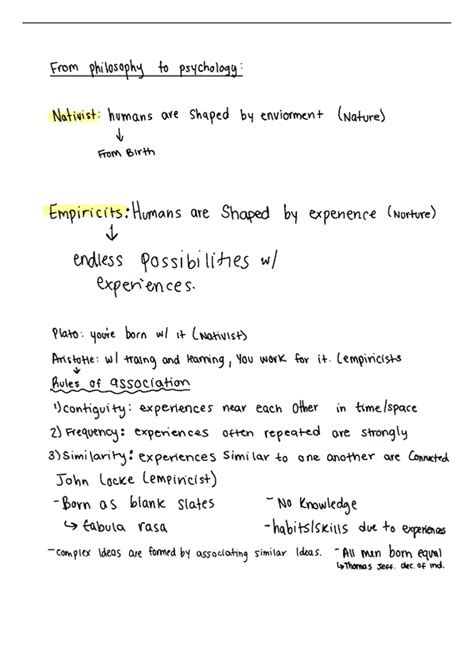 From philosophy to psychology:
Nativist: humans are shaped by enviorment (Nature)
↓
From Birth
Empiricits: Humans are shaped by experience (Nurture)
↓
endless possibilities w/
experiences.
Plato: you're born w/ it (Nativist)
Aristotle: w/ traing and learning, you work for it. (empiricists
↓
Rules of association
1) contiguity: experiences near each other in time/space
2) Frequency: experiences often repeated are strongly
3) Similarity: experiences similar to one another are connected
John Locke (empiricist)
- Born as blank slates - No knowledge
↳ tabula rasa - habits/skills due to experiences
- complex ideas are formed by associating similar ideas. - All men born equal
↳ Thomas Jeff. dec. of ind.